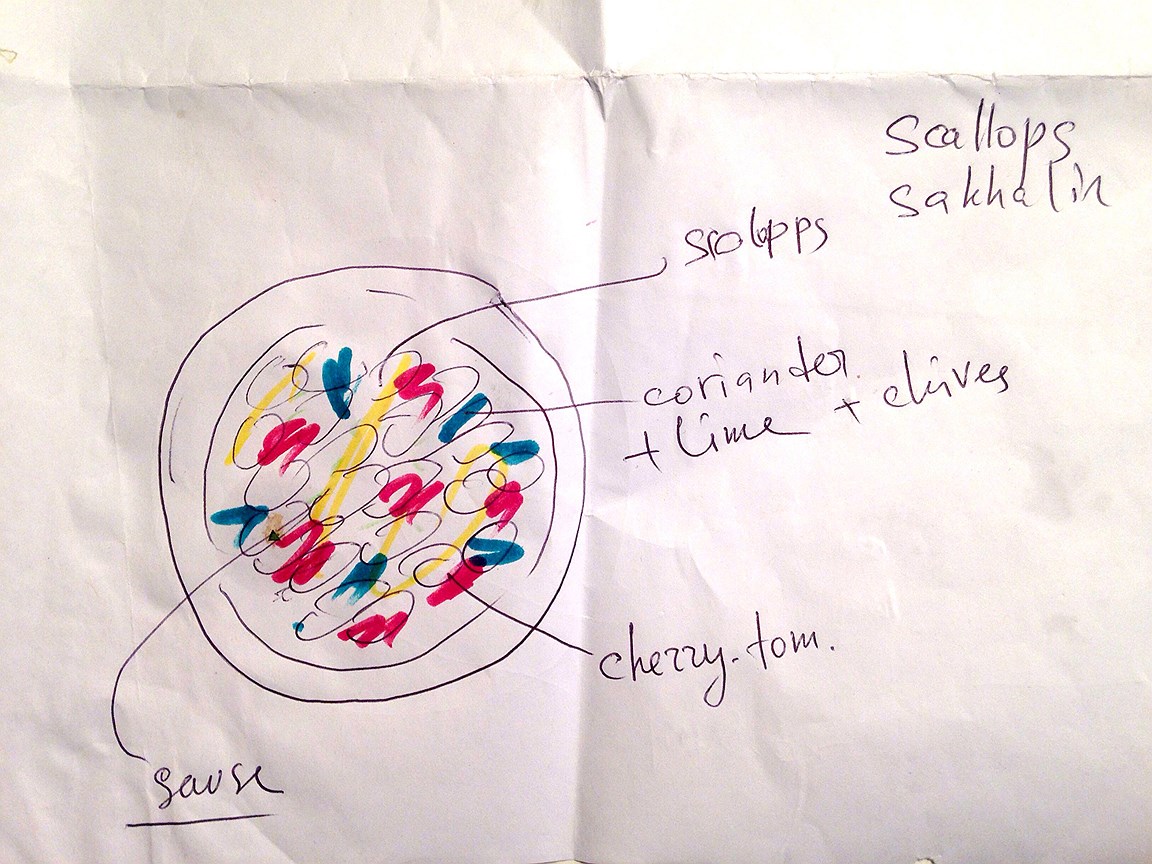 Scallops
sakhalin
scolopps
coriander
+ lime + chives
cherry. tom.
sause